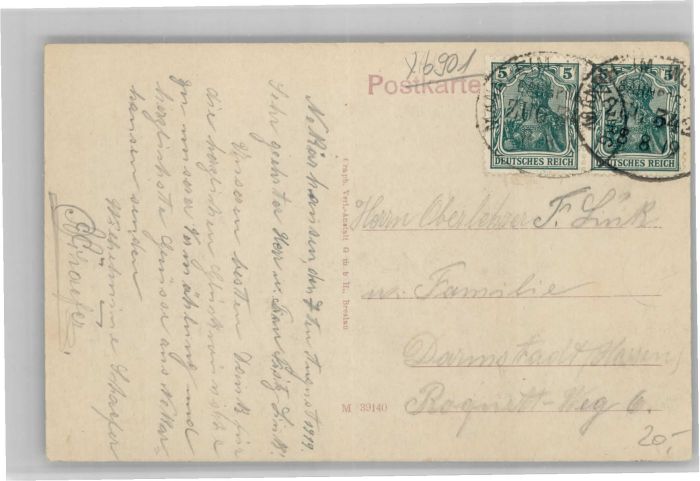 X6901
Postkarte
5 5
5 5
DEUTSCHES REICH
DEUTSCHES REICH
Neckarhausen, den 7ten August 1919.
Sehr geehrter Herr u. Frau Fritz Link!
Unseren besten Dank für
die herzlichen Glückwünsche
zu unserer Vermählung und
herzlichste Grüsse aus Neckar-
hausen senden
Wilhelmine Schaefer
Schaefer.
Graph. Verl.-Anstalt G m b H., Breslau
M 39140
Herrn Oberlehrer F. Link
u. Familie
Darmstadt (Hessen)
Roquett-Weg 6.
20,-